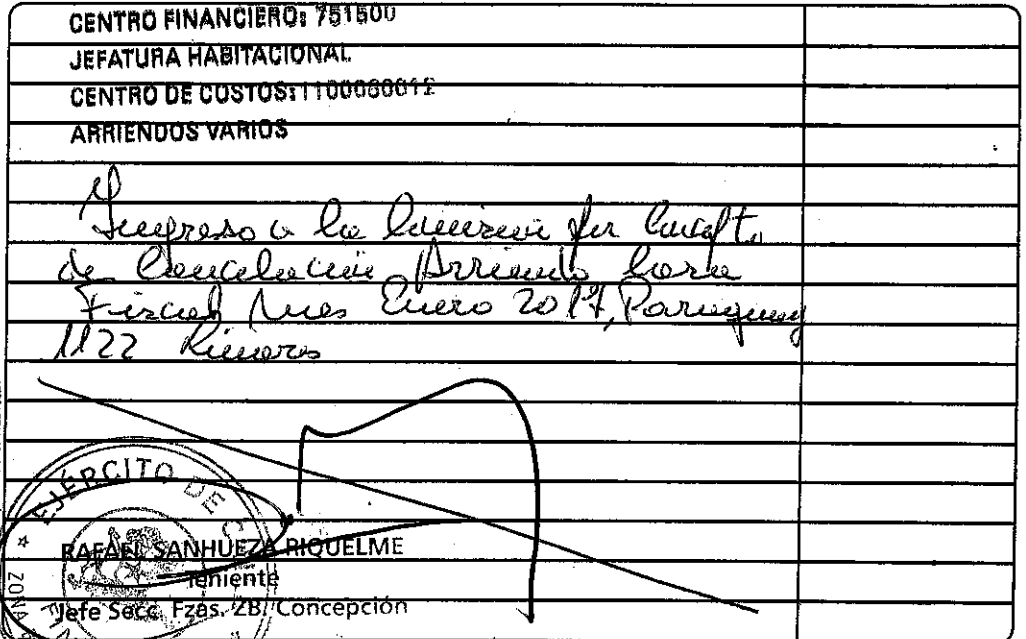 CENTRO FINANCIERO: 751500
JEFATURA HABITACIONAL
CENTRO DE COSTOS: 1100060012
ARRIENDOS VARIOS
Ingreso a la
de Cancelación Arriendo Casa
Fiscal Mes Enero 2017, Paraguay
1122 Linares
EJÉRCITO DE C
RAFAEL SANHUEZA RIQUELME
Teniente
Jefe Secc. Fzas. ZB. Concepción
ZONA